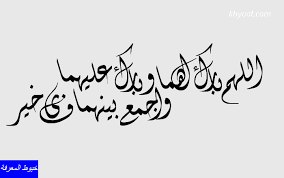 khyoot.com
اللهم بارك لهما وبارك عليهما
واجمع بينهما في خير
خيوط المعرفة